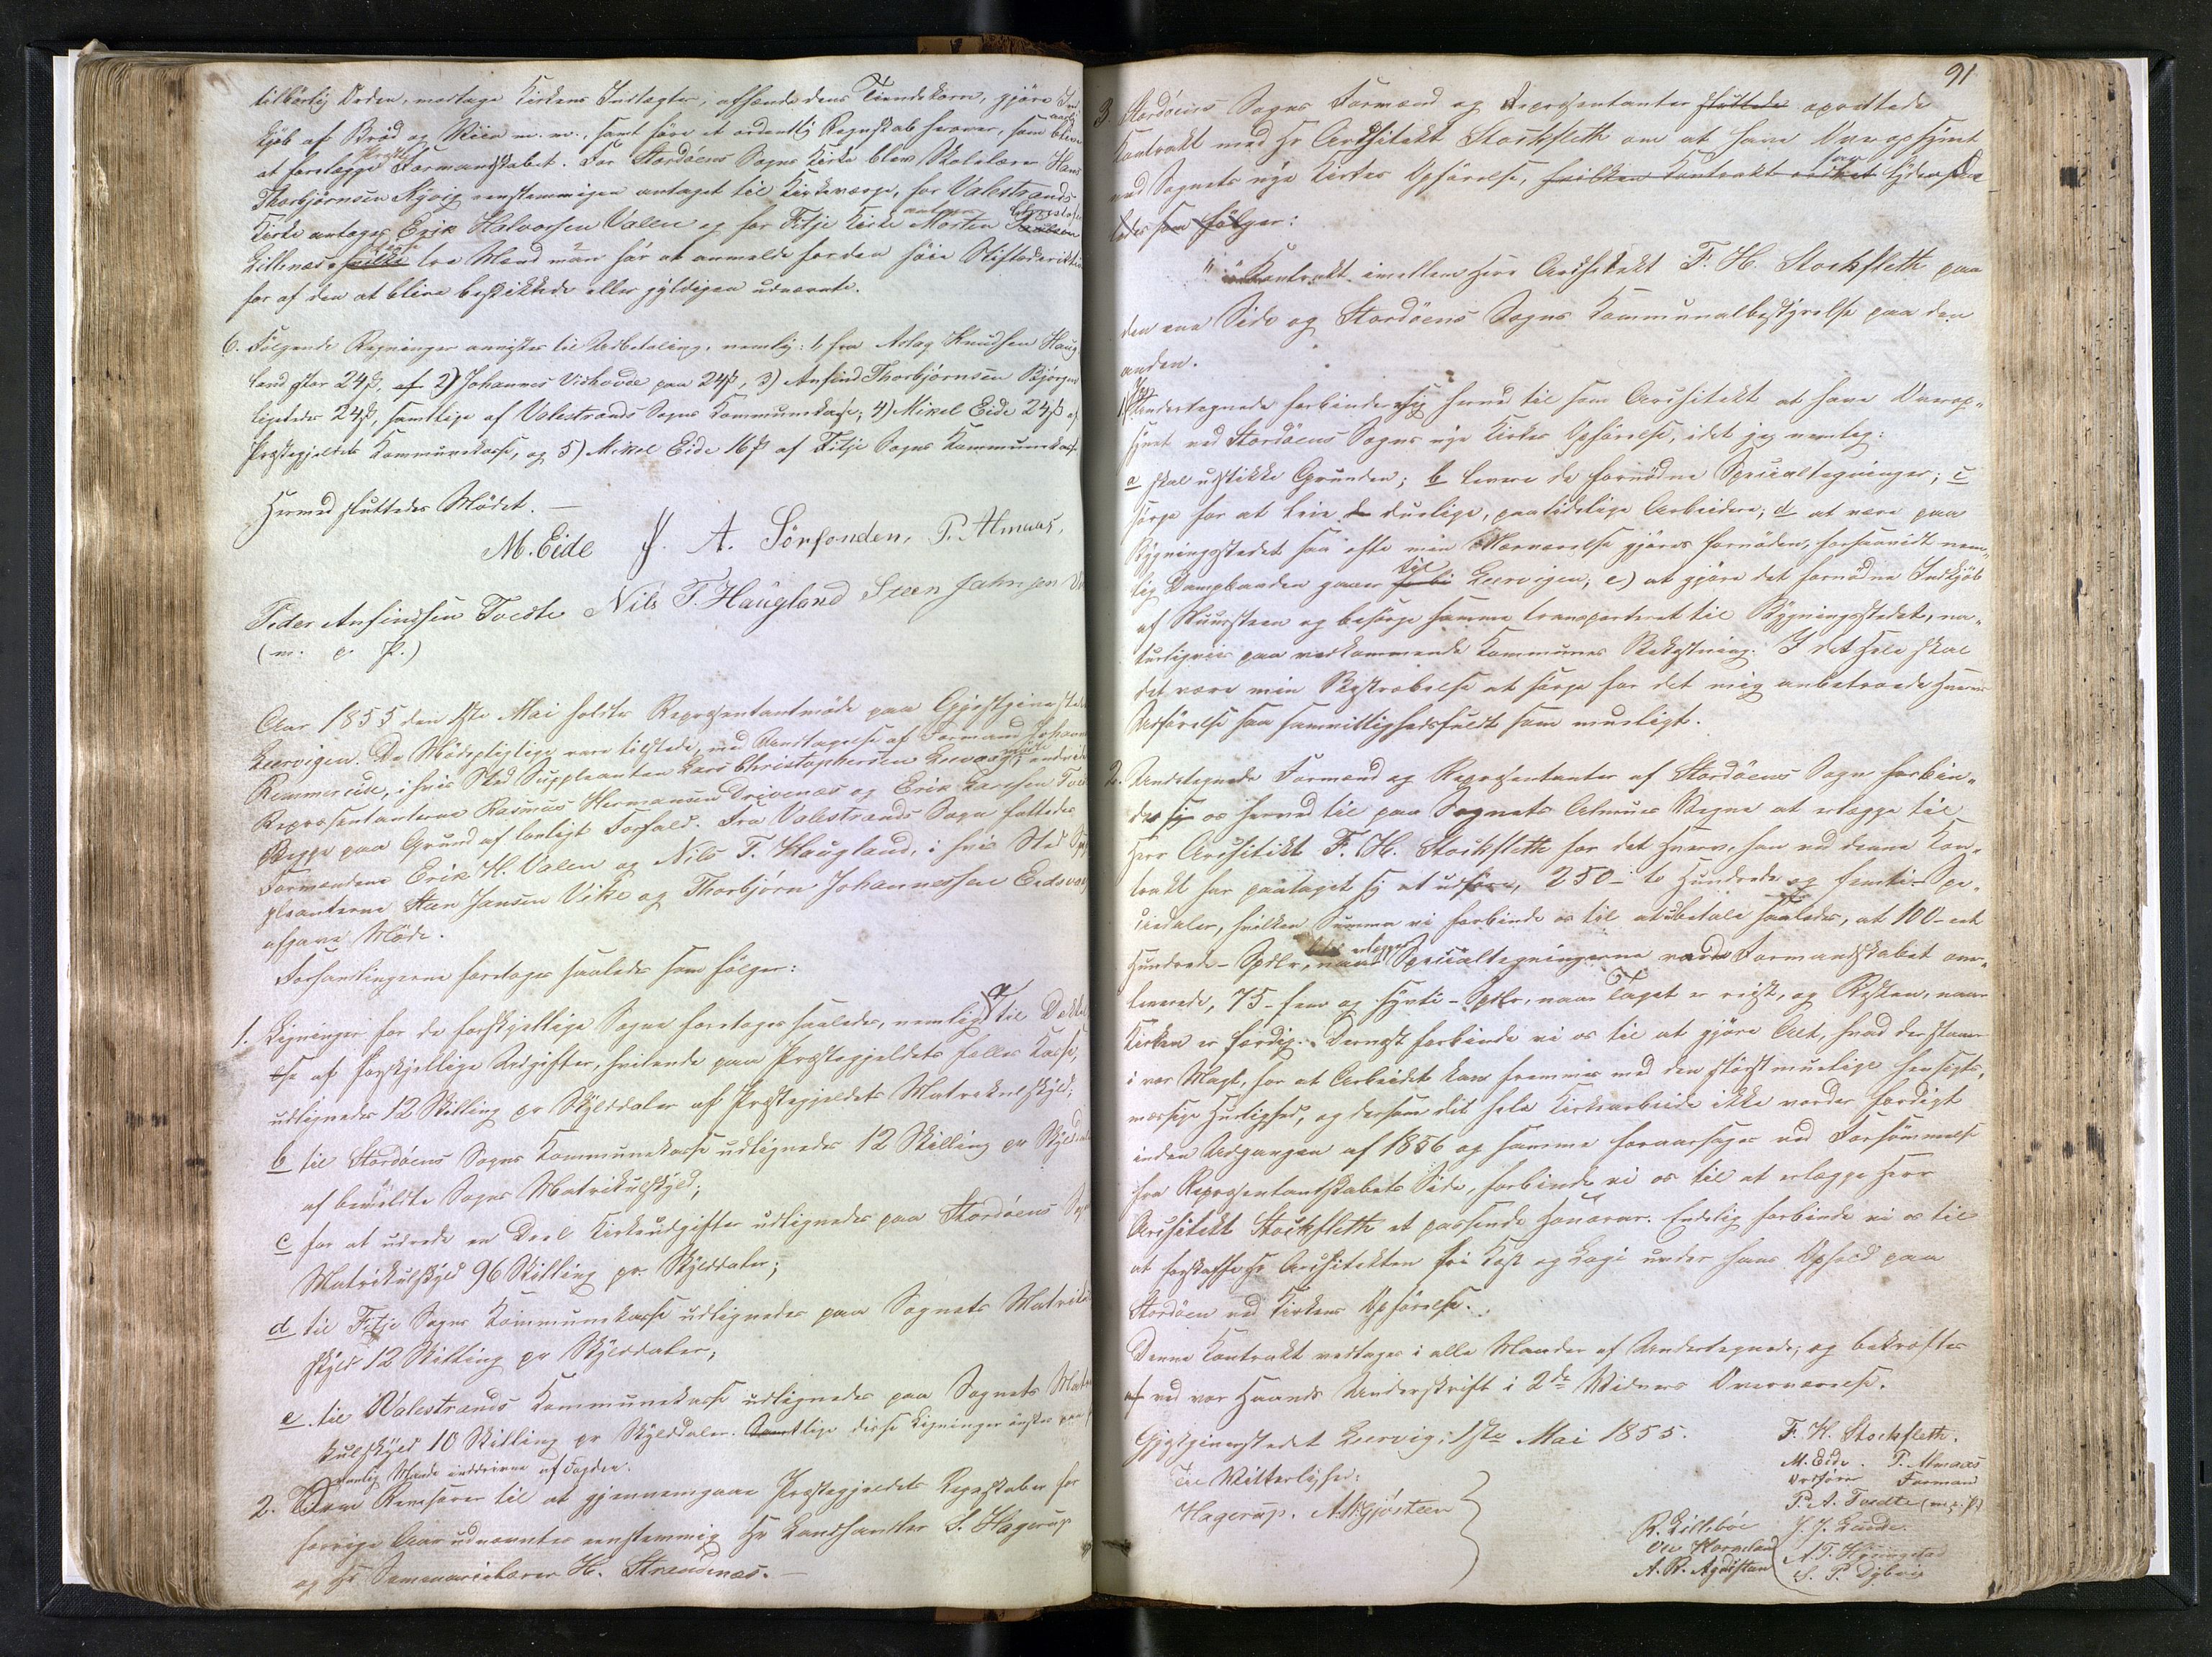 tilbørlig Orden, modtage Kirkens Indtægter, afhænde dens Tiendekorn, gjøre Ind-
kjøb af Brød og Viin m. m., samt føre et ordentlig Regnskab herover, som bliver aarlig
at forelægge Formandskabet. For Stordøens Sogns Kirke blev Skolelærer Hans
Thorbjørnsen Nysvig eenstemmigen antaget til Kirkeværge, for Valestrands
Kirke antages Erik Halvorsen Valen og for Fitje Kirke Morten
Lillenæs, hvilke tre Mænd man har at anmelde for den høie Stiftsdirektion
for af den at blive beskikkede eller gyldigen udnævnte.
6. Følgende Regninger anvistes til Udbetaling, nemlig: 1, fra Aslag Knudsen Haug-
land stor 24 ß, af 2) Johannes Vishovde paa 24 ß, 3) Anfind Thorbjørnsen Bjørgen
ligeledes 24 ß, samtlige af Valestrands Sogns Kommunekasse; 4) Mikel Eide 24 ß af
Præstegjeldets Kommunekasse, og 5) Mikel Eide 16 ß af Fitje Sogns Kommunekasse
Hermed sluttedes Mødet. —
M. Eide J. A. Sörfonden, P. Almaas,
Peder Anfindsen Tvedte Nils T. Haugland Steen Jahnsen
(m. p. P.)
Aar 1855 den 1ste Mai holdtes Repræsentantmøde paa Gjæstgiverstedet
Leervigen. De Mødepligtige vare tilstede, med Undtagelse af Formand Johannes
Rommereide, i hvis Sted Suppleanten Lars Christophersen Leervaag mødte,
Repræsentanterne Rasmus Hermansen Drivenæs og Erik Larsen
Begge paa Grund af lovligt Forfald. Fra Valestrands Sogn fattedes
Formændene Erik H. Valen og Nils T. Haugland, i hvis Sted Sup-
pleanterne Steen Jansen Vike og Thorbjørn Johannessen Eidsvaag
afgave Møde.
Forhandlingerne foretoges saaledes som følger:
1. Ligninger for de forskjellige Sogne foretoges saaledes, nemlig: a til Dækkel-
se af forskjellige Udgifter, hvilende paa Præstegjeldets fælles Kasse,
udlignedes 12 Skilling pr Skylddaler af Præstegjeldets Matrikulskyld;
b til Stordøens Sogns Kommunekasse udlignedes 12 Skilling pr Skylddaler
af bemeldte Sogns Matrikulskyld;
c for at udrede en Deel Kirkeudgifter udlignedes paa Stordøens Sogns
Matrikulskyld 96 Skilling pr. Skylddaler;
d til Fitje Sogns Kommunekasse udlignedes paa Sognets Matrikul-
skyld 12 Skilling pr Skylddaler;
e. til Valestrands Kommunekasse udlignedes paa Sognets Matri-
kulskyld 10 Skilling pr Skylddaler. Samtlige disse Ligninger ønskes paa
vanlig Maade inddrevne af Fogden.
2. Som Revisorer til at gjennemgaae Præstegjeldets Regnskaber for
forrige Aar udnævntes eenstemmig Hr Landhandler S. Hagerup
og Hr Seminarielærer H. Strandenæs. —
91
3. Stordøens Sogns Formænd og Repræsentanter sluttede oprettede
Kontrakt med Hr Architekt Stockfleth om at have Overopsynet
ved Sognets nye Kirkes Opførelse, hvilken Kontrakt lyder saa-
ledes som følger:
" Kontrakt imellem Herr Architekt F. H. Stockfleth paa
den ene Side og Stordöens Sogns Kommunalbestyrelse paa den
anden.
1. Jeg Undertegnede forbinder mig herved til som Architekt at have Overop-
synet ved Stordöens Sogns nye Kirkes Opførelse, idet jeg nemlig:
a skal udstikke Grunden; b levere de fornødne Specialtegninger; c
sørge for at leie duelige, paalidelige Arbeidere; d at være paa
Bygningsstedet saa ofte min Nærværelse gjøres fornøden, forsaavidt nem-
lig Dampbaaden gaaer til Leervigen; e) at gjøre det fornødne Indkjøb
af Muursteen og besørge samme transporteret til Bygningsstedet, na-
turligviis paa vedkommende Kommunes Bekostning. I det Hele skal
det være min Bestræbelse at sørge for det mig anbetroede Hvervs
Udførelse saa samvittighedsfuldt som mueligt.
2. Undertegnede Formænd og Repræsentanter af Stordöens Sogn forbin-
der sig os herved til paa Sognets Almues Vegne at erlægge til
Herr Architekt F. H. Stockfleth for det Hverv, han ved denne Kon-
trakt har paataget sig at udføre, 250 - to Hundrede og femti - Spe-
ciedaler, hvilken Summa vi forbinde os til at udbetale saaledes, at 100 - eet
Hundrede - Spdlr, erlægges naar Specialtegningerne vorde Formandskabet over-
leverede, 75 - fem og sytti - Spdlr, naar Taget er reist, og Resten, naar
Kirken er færdig. Dernæst forbinde vi os til at gjøre Alt, hvad der staaer
i vor Magt, for at Arbeidet kan fremmes med den størst muelige hensigts-
mæssige Hurtighed, og dersom det hele Kirkearbeide ikke vorder færdigt
inden Udgangen af 1856 og samme foraarsages ved Forsømmelse
fra Repræsentantskabets Side, forbinde vi os til at erlægge Herr
Architekt Stockfleth et passende Honorar. Endelig forbinde vi os til
at forskaffe Hr Architekten fri Kost og Logi under hans Ophold paa
Stordöen ved Kirkens Opførelse.
Denne Kontrakt vedtages i alle Maader af Undertegnede, og bekræftes
af ved vor Haands Underskrift i 2de Vidners Overværelse.
Gjæstgiverstedet Leervig, 1ste Mai 1855.
F. H. Stockfleth.
Til Vitterlighed:
M. Eide. P. Almaas
Ordfører Formand
Hagerup. A. M. Gjøsteen
P. A. Tvedte (m. p. P.)
R. Lillebøe J. J. Lunde.
Ole Horneland A. T. Hÿstad
A. R. Agdestein S. P. Dybvig